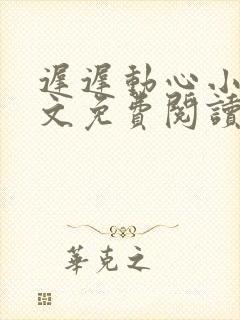 遲遲動心小
文免費閱讀
華克之